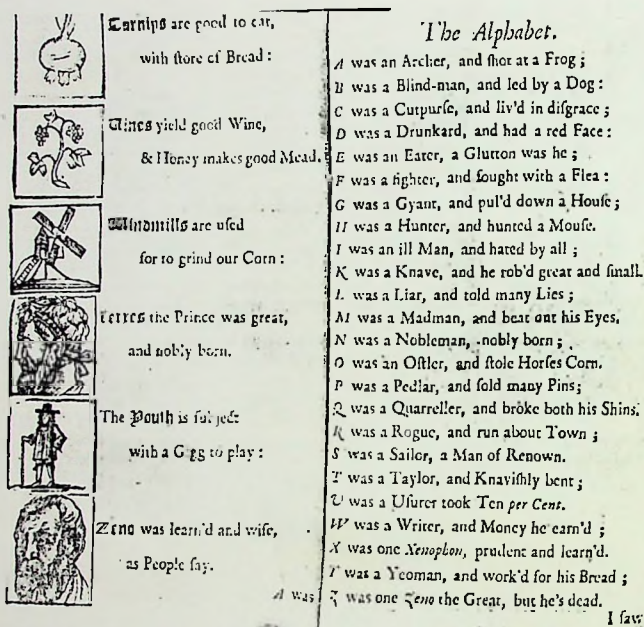 Turnips are good to eat,
with ſtore of Bread :
Vines yield good Wine,
& Honey makes good Mead.
Windmills are uſed
for to grind our Corn :
Xerxes the Prince was great,
and nobly born.
The Youth is ſubject
with a Gigg to play :
Zeno was learn'd and wiſe,
as People ſay.
A was
The Alphabet.
A was an Archer, and ſhot at a Frog ;
B was a Blind-man, and led by a Dog :
C was a Cutpurſe, and liv'd in diſgrace ;
D was a Drunkard, and had a red Face :
E was an Eater, a Glutton was he ;
F was a fighter, and fought with a Flea :
G was a Gyant, and pul'd down a Houſe ;
H was a Hunter, and hunted a Mouſe.
I was an ill Man, and hated by all ;
K was a Knave, and he rob'd great and ſmall.
L was a Liar, and told many Lies ;
M was a Madman, and beat out his Eyes.
N was a Nobleman, nobly born ;
O was an Oſtler, and ſtole Horſes Corn.
P was a Pedlar, and ſold many Pins ;
Q was a Quarreller, and broke both his Shins.
R was a Rogue, and run about Town ;
S was a Sailor, a Man of Renown.
T was a Taylor, and Knaviſhly bent ;
U was a Uſurer took Ten per Cent.
W was a Writer, and Money he earn'd ;
X was one Xenophon, prudent and learn'd.
Y was a Yeoman, and work'd for his Bread ;
Z was one Zeno the Great, but he's dead.
I ſaw